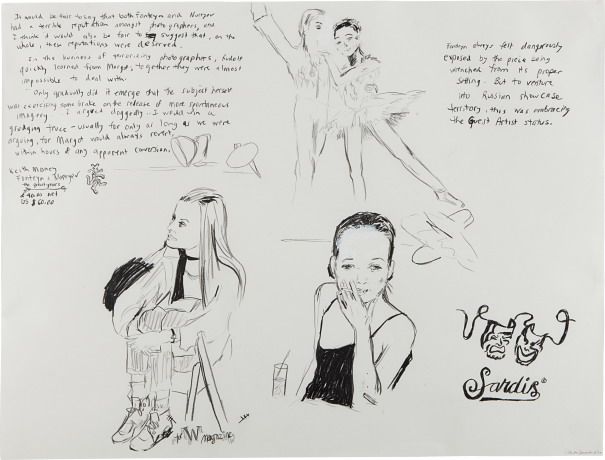 It would be fair to say that both Fonteyn and Nureyev
had a terrible reputation amongst photographers, and
I think it would also be fair to suggest that, on the
whole, these reputations were deserved.
In the business of terrorizing photographers, Rudolf
quickly learned from Margot, together they were almost
impossible to deal with.
Only gradually did it emerge that the subject herself
was exercising some brake on the release of more spontaneous
imagery. I argued doggedly. I would win a
grudging truce - usually for only as long as we were
arguing, for Margot would always revert,
within hours of any apparent conversion.
Keith Money
Fonteyn & Nureyev
the great years
£40.00 net
US $60.00
Fonteyn always felt dangerously
exposed by the piece being
wrenched from its proper
setting. But to venture
into Russian showcase
territory, this was embracing
the Guest Artist status.
for W magazine
Sardis